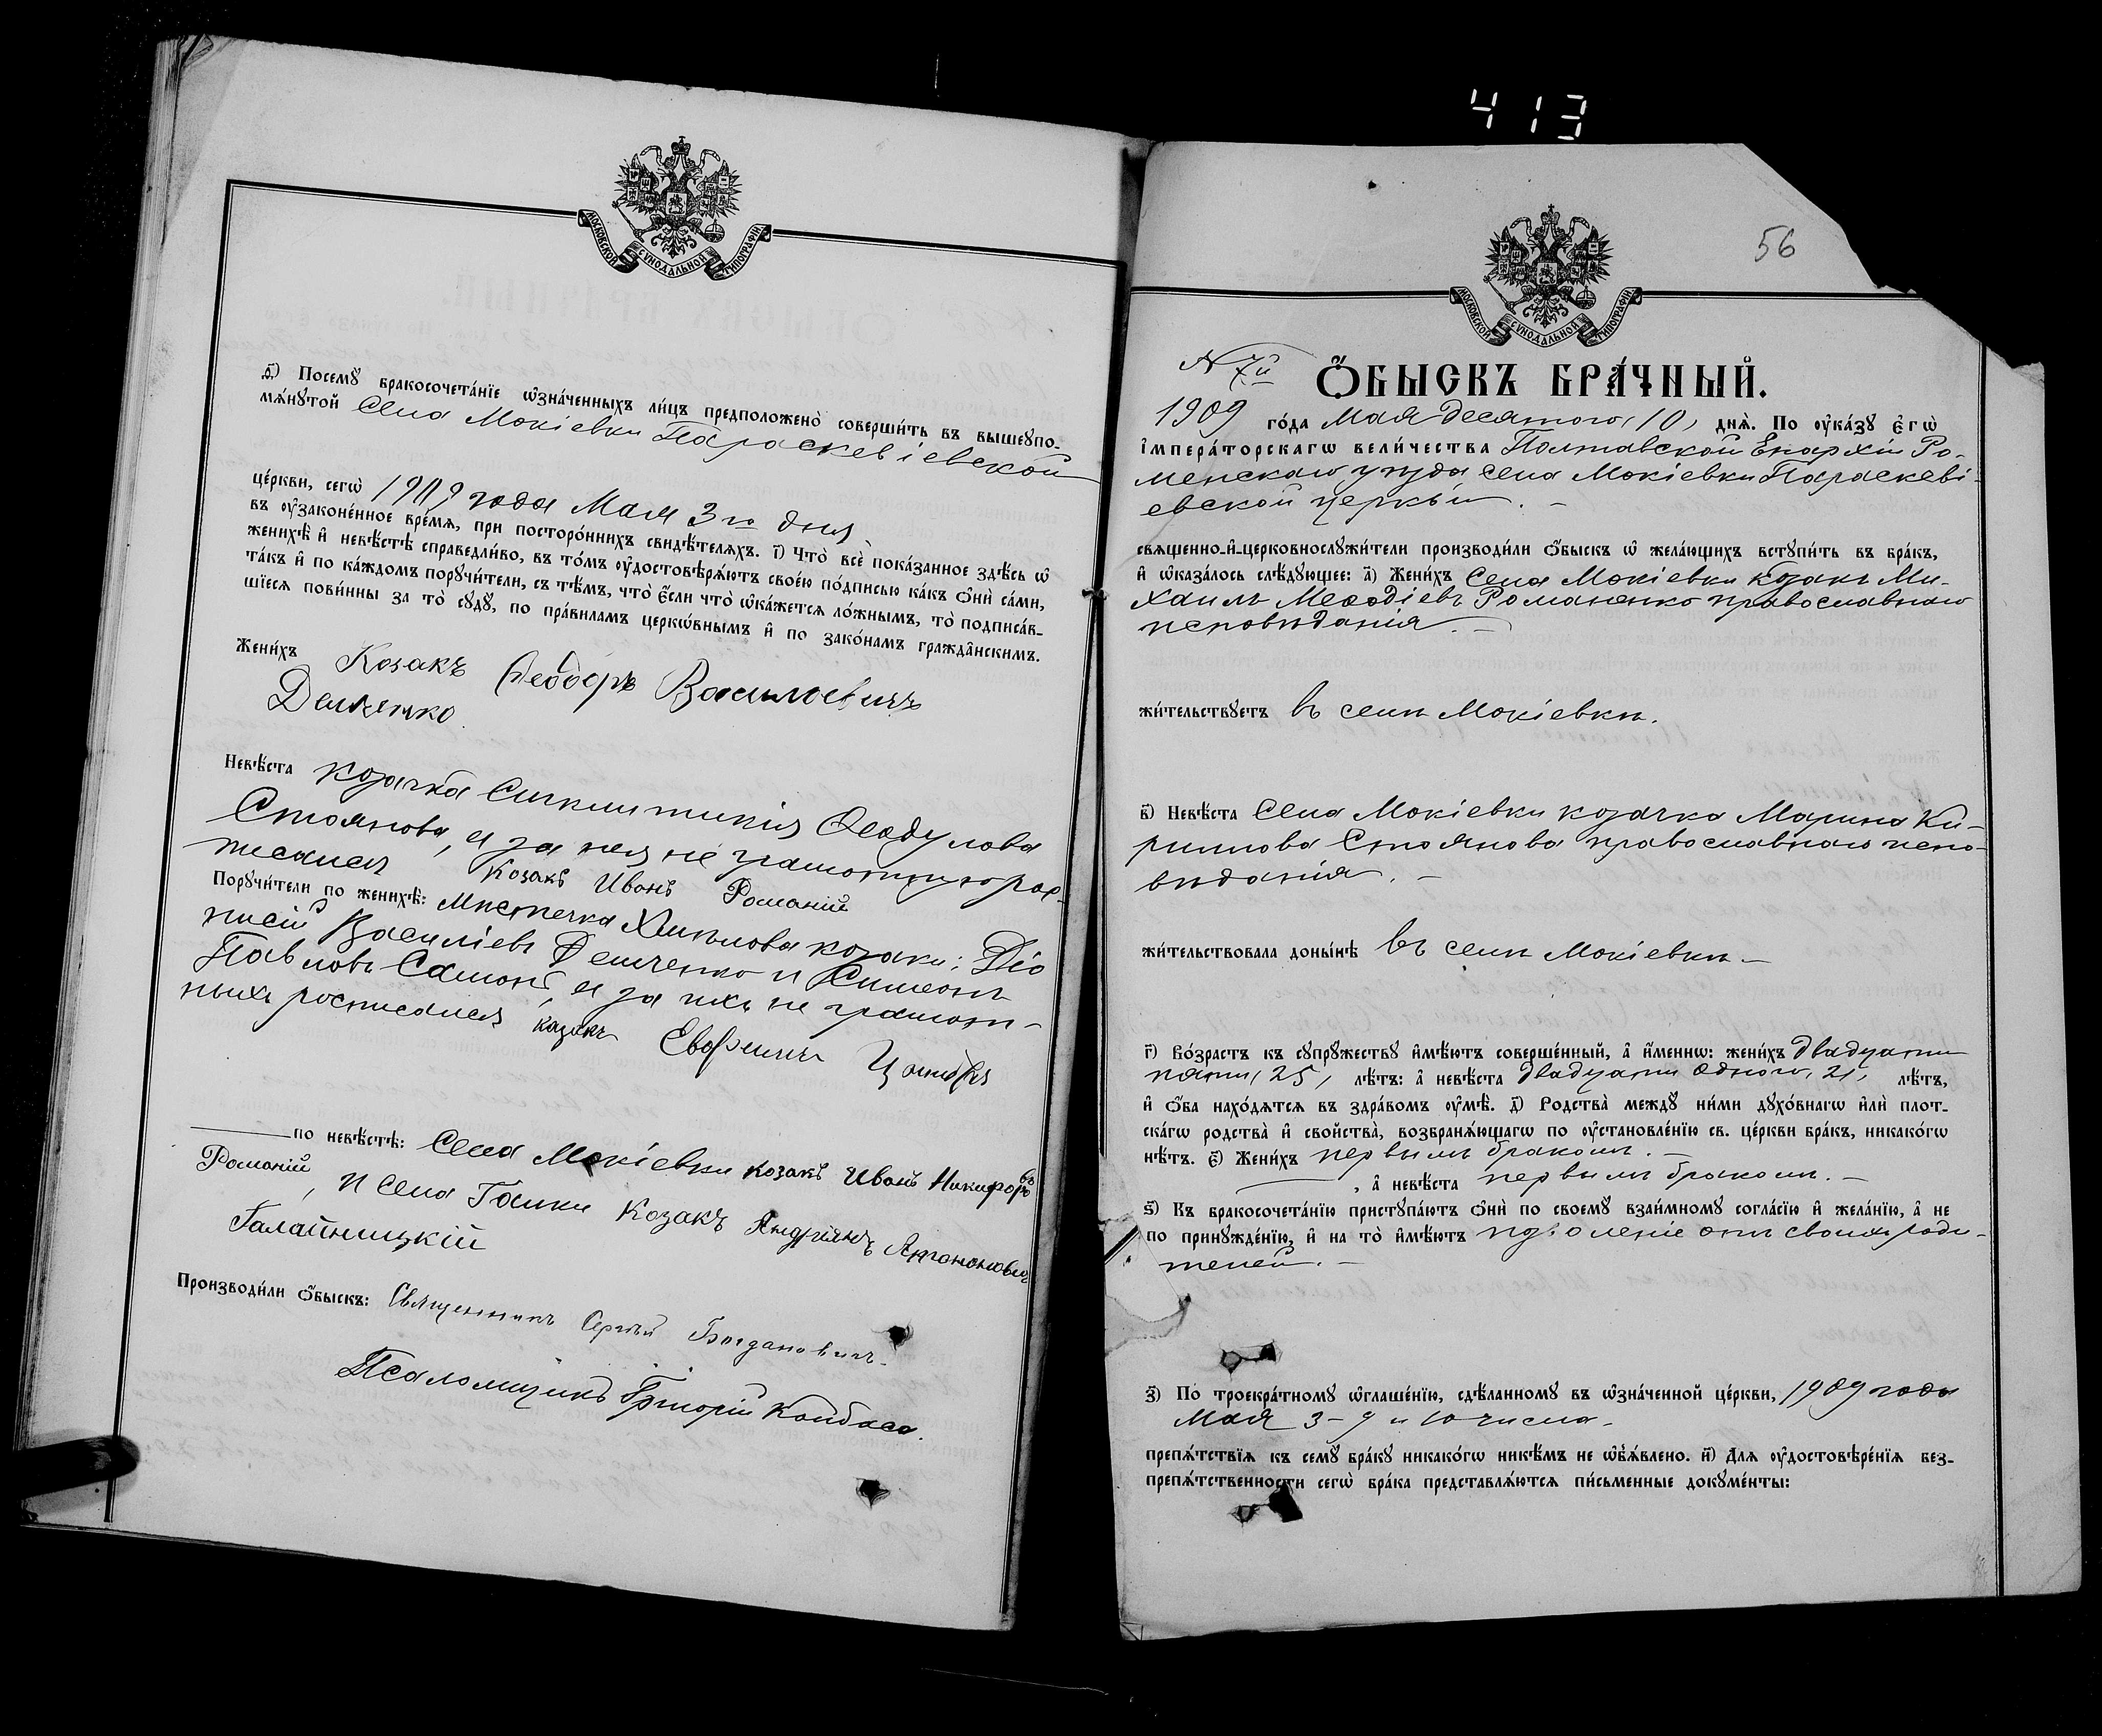 413
МОСКОВСКОЙ СУНОДАЛЬНОЙ ТИПОГРАФІИ
Посемꙋ бракосочета́нїе ѡ҆зна́ченныхъ ли́цъ предположено̀ соверши́ть въ вышеꙋпо-
мѧ́нꙋтой Села Мокіевки Параскевіевской
це́ркви, сегѡ̀ 1909 года Мая 3го дня
въ ᲂу҆законе́нное вре́мѧ, при посторо́ннихъ свидѣ́телѧхъ. і҃) Что̀ всѐ пока́занное здѣ́сь ѡ҆
женихѣ̀ и҆ невѣ́стѣ справедли́во, въ то́мъ ᲂу҆достовѣрѧ́ютъ свое́ю по́дписью ка́къ ѻ҆нѝ са́ми,
та́къ и҆ по ка́ждомъ порꙋчи́тели, съ тѣ́мъ, что̀ є҆́сли что̀ ѡ҆ка́жетсѧ ло́жнымъ, то̀ подписа́в-
шїесѧ пови́нны за то̀ сꙋдꙋ̀, по пра́виламъ церкѡ́внымъ и҆ по зако́намъ гражда̑нскимъ.
Жени́хъ Козакъ Феодоръ Васильевичъ
Демченко
Невѣ́ста козачка Синклитикія Ѳеодулова
Стоянова, а за нея не грамотную рос-
писался Козакъ Иванъ Романій
Порꙋчи́тели по женихѣ̀: Мистечка Хмѣлова козаки: Діо
нисій Василіевъ Демченко и Симеонъ
Павловъ Самоні, а за ихъ не грамот-
ныхъ росписался козакъ Евфимъ
по невѣ́стѣ: Села Мокіевки Козакъ Иванъ Никифоровъ
Романій, и села Галки Козакъ Андріянъ
Галайницкій
Производи́ли ѻ҆́быскъ: Священникъ Сергѣй Богдановичъ
Псаломщикъ Григорій Ковбаса.
56
МОСКОВСКОЙ СУНОДАЛЬНОЙ ТИПОГРАФІИ
N 7й
Ѻ҆́БЫСКЪ БРА́ЧНЫЙ.
1909 го́да Мая десятого, 10, днѧ̀. По ᲂу҆ка́зꙋ є҆гѡ̀
і҆мпера́торскагѡ вели́чества Полтавской Епархіи Ро-
менскаго уѣзда села Мокіевки Параскеві-
евской церкви. –
свѧщенно-и҆-церковнослꙋжи́тели производи́ли ѻ҆́быскъ ѡ҆ жела́ющихъ встꙋпи́ть въ бра́къ,
и҆ ѡ҆каза́лось слѣ́дꙋющее: а҃) Жени́хъ Села Мокіевки козакъ Ми-
хаилъ Меѳодіевъ Романенко православнаго
исповѣданія. –
жи́тельствꙋетъ въ селѣ Мокіевкѣ.
в҃) Невѣ́ста Села Мокіевки козачка Марина Ки-
рилова Стоянова православнаго испо-
вѣданія. –
жи́тельствовала доны́нѣ въ селѣ Мокіевкѣ –
г҃) Во́зрастъ къ сꙋпрꙋ́жествꙋ и҆мѣ́ютъ соверше́нный, а҆ и҆́меннѡ: жени́хъ двадцати
пяти, 25, лѣ́тъ: а҆ невѣ́ста двадцати одного, 21, лѣ́тъ,
и҆ ѻ҆́ба нахо́дѧтсѧ въ здра́вомъ ᲂу҆мѣ̀. д҃) Родства̀ междꙋ̀ ни́ми дꙋхо́внагѡ и҆лѝ пло́т-
скагѡ родства̀ и҆ сво́йства̀, возбранѧ́ющагѡ по ᲂу҆становле́нїю св. це́ркви бра́къ, никако́гѡ
нѣ́тъ. є҃) Жени́хъ первымъ бракомъ. –
, а҆ невѣ́ста первымъ бракомъ. –
ѕ҃) Къ бракосочета́нїю пристꙋпа́ютъ ѻ҆нѝ по своемꙋ̀ взаи́мномꙋ согла́сїю и҆ жела́нїю, а҆ не
по принꙋжде́нїю, и҆ на то̀ и҆мѣ́ютъ позволеніе отъ своихъ роди-
телей. –
з҃) По троекра́тномꙋ ѡ҆глаше́нїю, сдѣ́ланномꙋ въ ѡ҆зна́ченной це́ркви, 1909 года
Мая 3 – 9 и 10 числа.
препѧ́тствїѧ къ семꙋ̀ бра́кꙋ никако́гѡ никѣ́мъ не ѡ҆б̾ѧ́влено. и҃) Длѧ ᲂу҆достовѣре́нїѧ без-
препѧ́тственности сегѡ̀ бра́ка представлѧ́ютсѧ пи́сьменные докꙋме́нты: